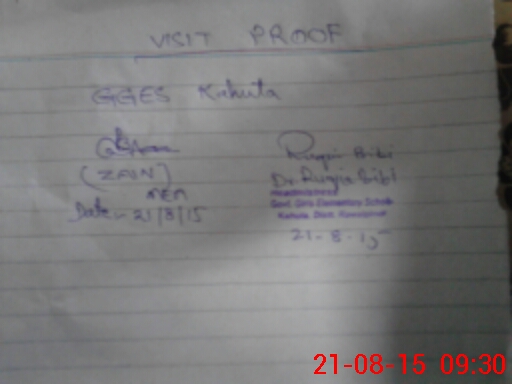 VISIT PROOF
GGES Kahuta
(ZAIN)
MEA
Date:- 21/8/15
Ruqia Bibi
Dr. Ruqia Bibi
Headmistress
Govt. Girls Elementary School
Kahuta. Distt. Rawalpindi
21-8-15
21-08-15 09:30